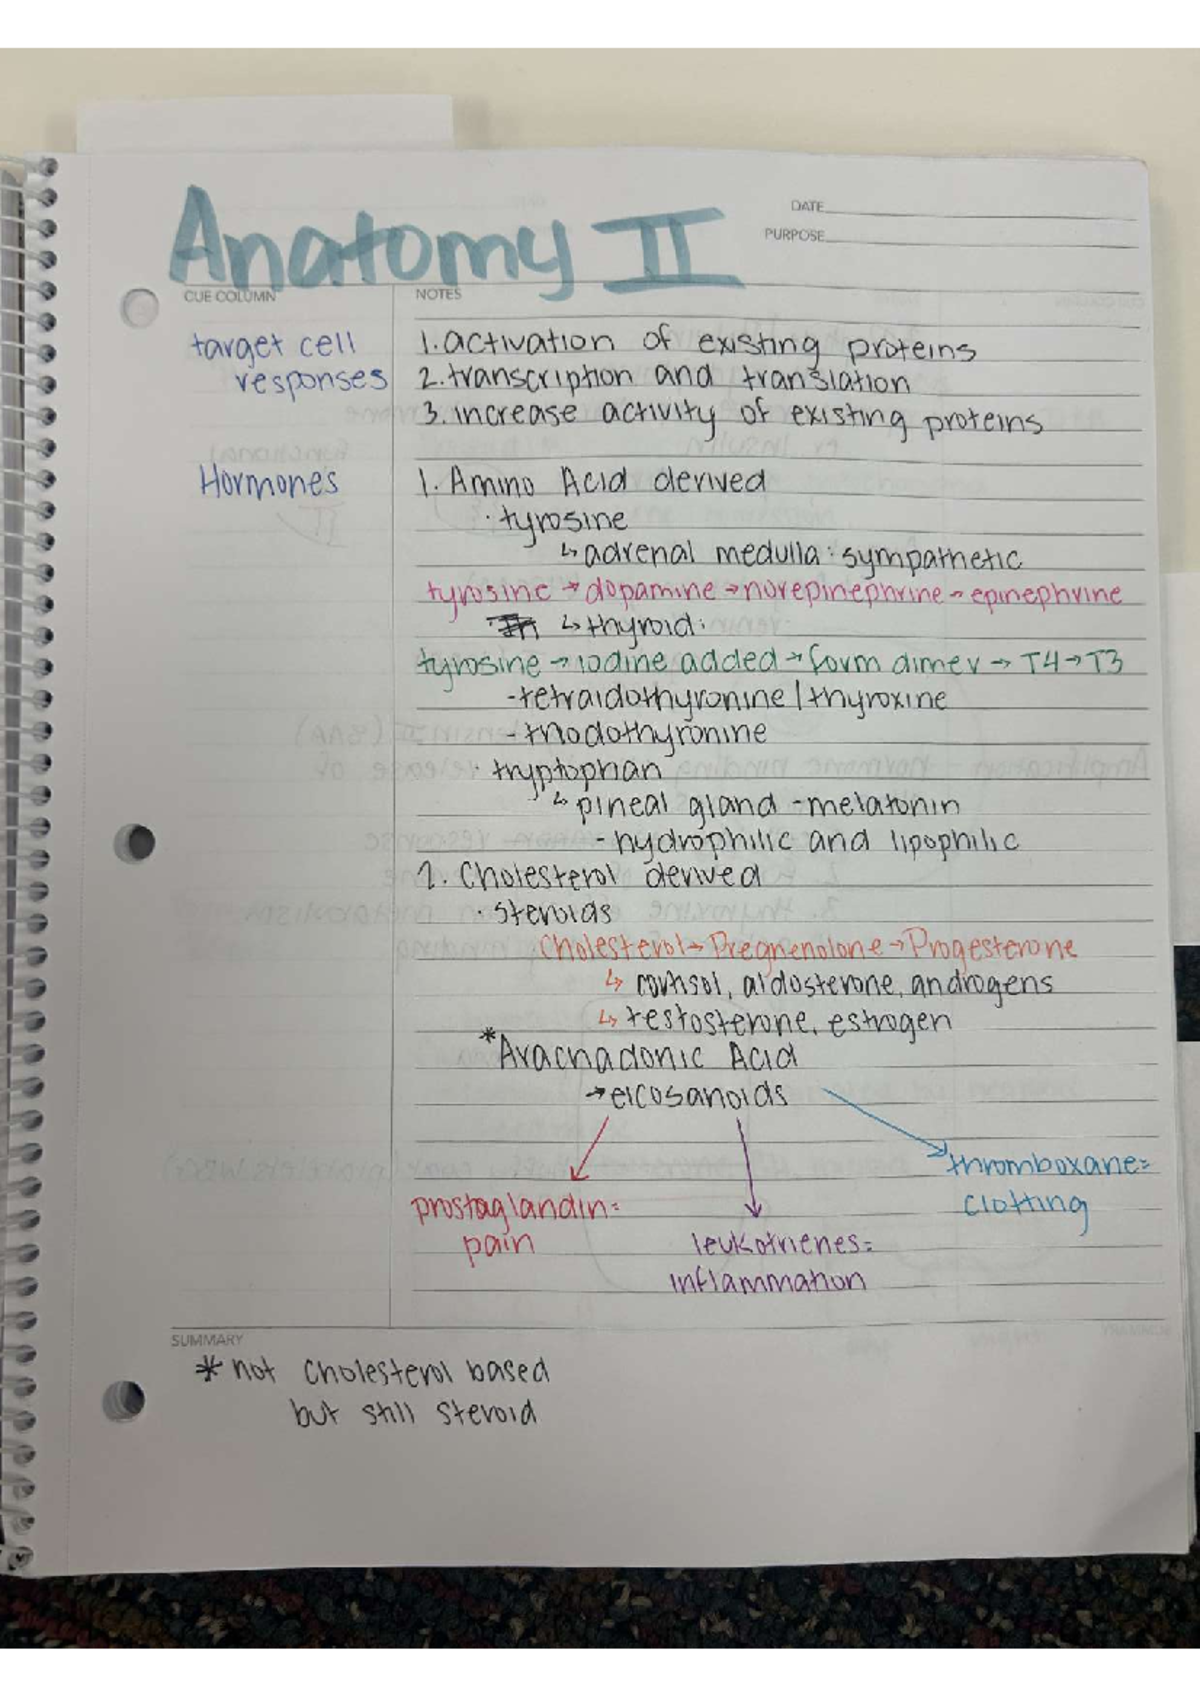 Anatomy II
DATE
PURPOSE
CUE COLUMN
NOTES
target cell responses
1. activation of existing proteins
2. transcription and translation
3. increase activity of existing proteins
Hormones
1. Amino Acid derived
· tyrosine
↳ adrenal medulla: sympathetic
tyrosine → dopamine → norepinephrine → epinephrine
↳ thyroid:
tyrosine → iodine added → form dimer → T4 → T3
- tetraidothyronine / thyroxine
- triodothyronine
· tryptophan
↳ pineal gland - melatonin
- hydrophilic and lipophilic
2. Cholesterol derived
· steroids
Cholesterol → Pregnenolone → Progesterone
↳ cortisol, aldosterone, androgens
↳ testosterone, estrogen
* Arachadonic Acid
→ eicosanoids
thromboxane =
clotting
prostaglandin =
pain
leukotrienes =
inflammation
SUMMARY
* not cholesterol based
but still steroid